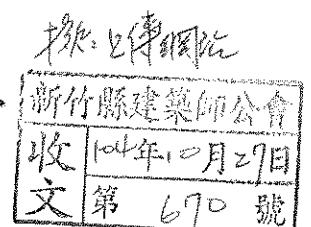 擬:上傳網站
新竹縣建築師公會
收文
104年10月27日
第 670 號